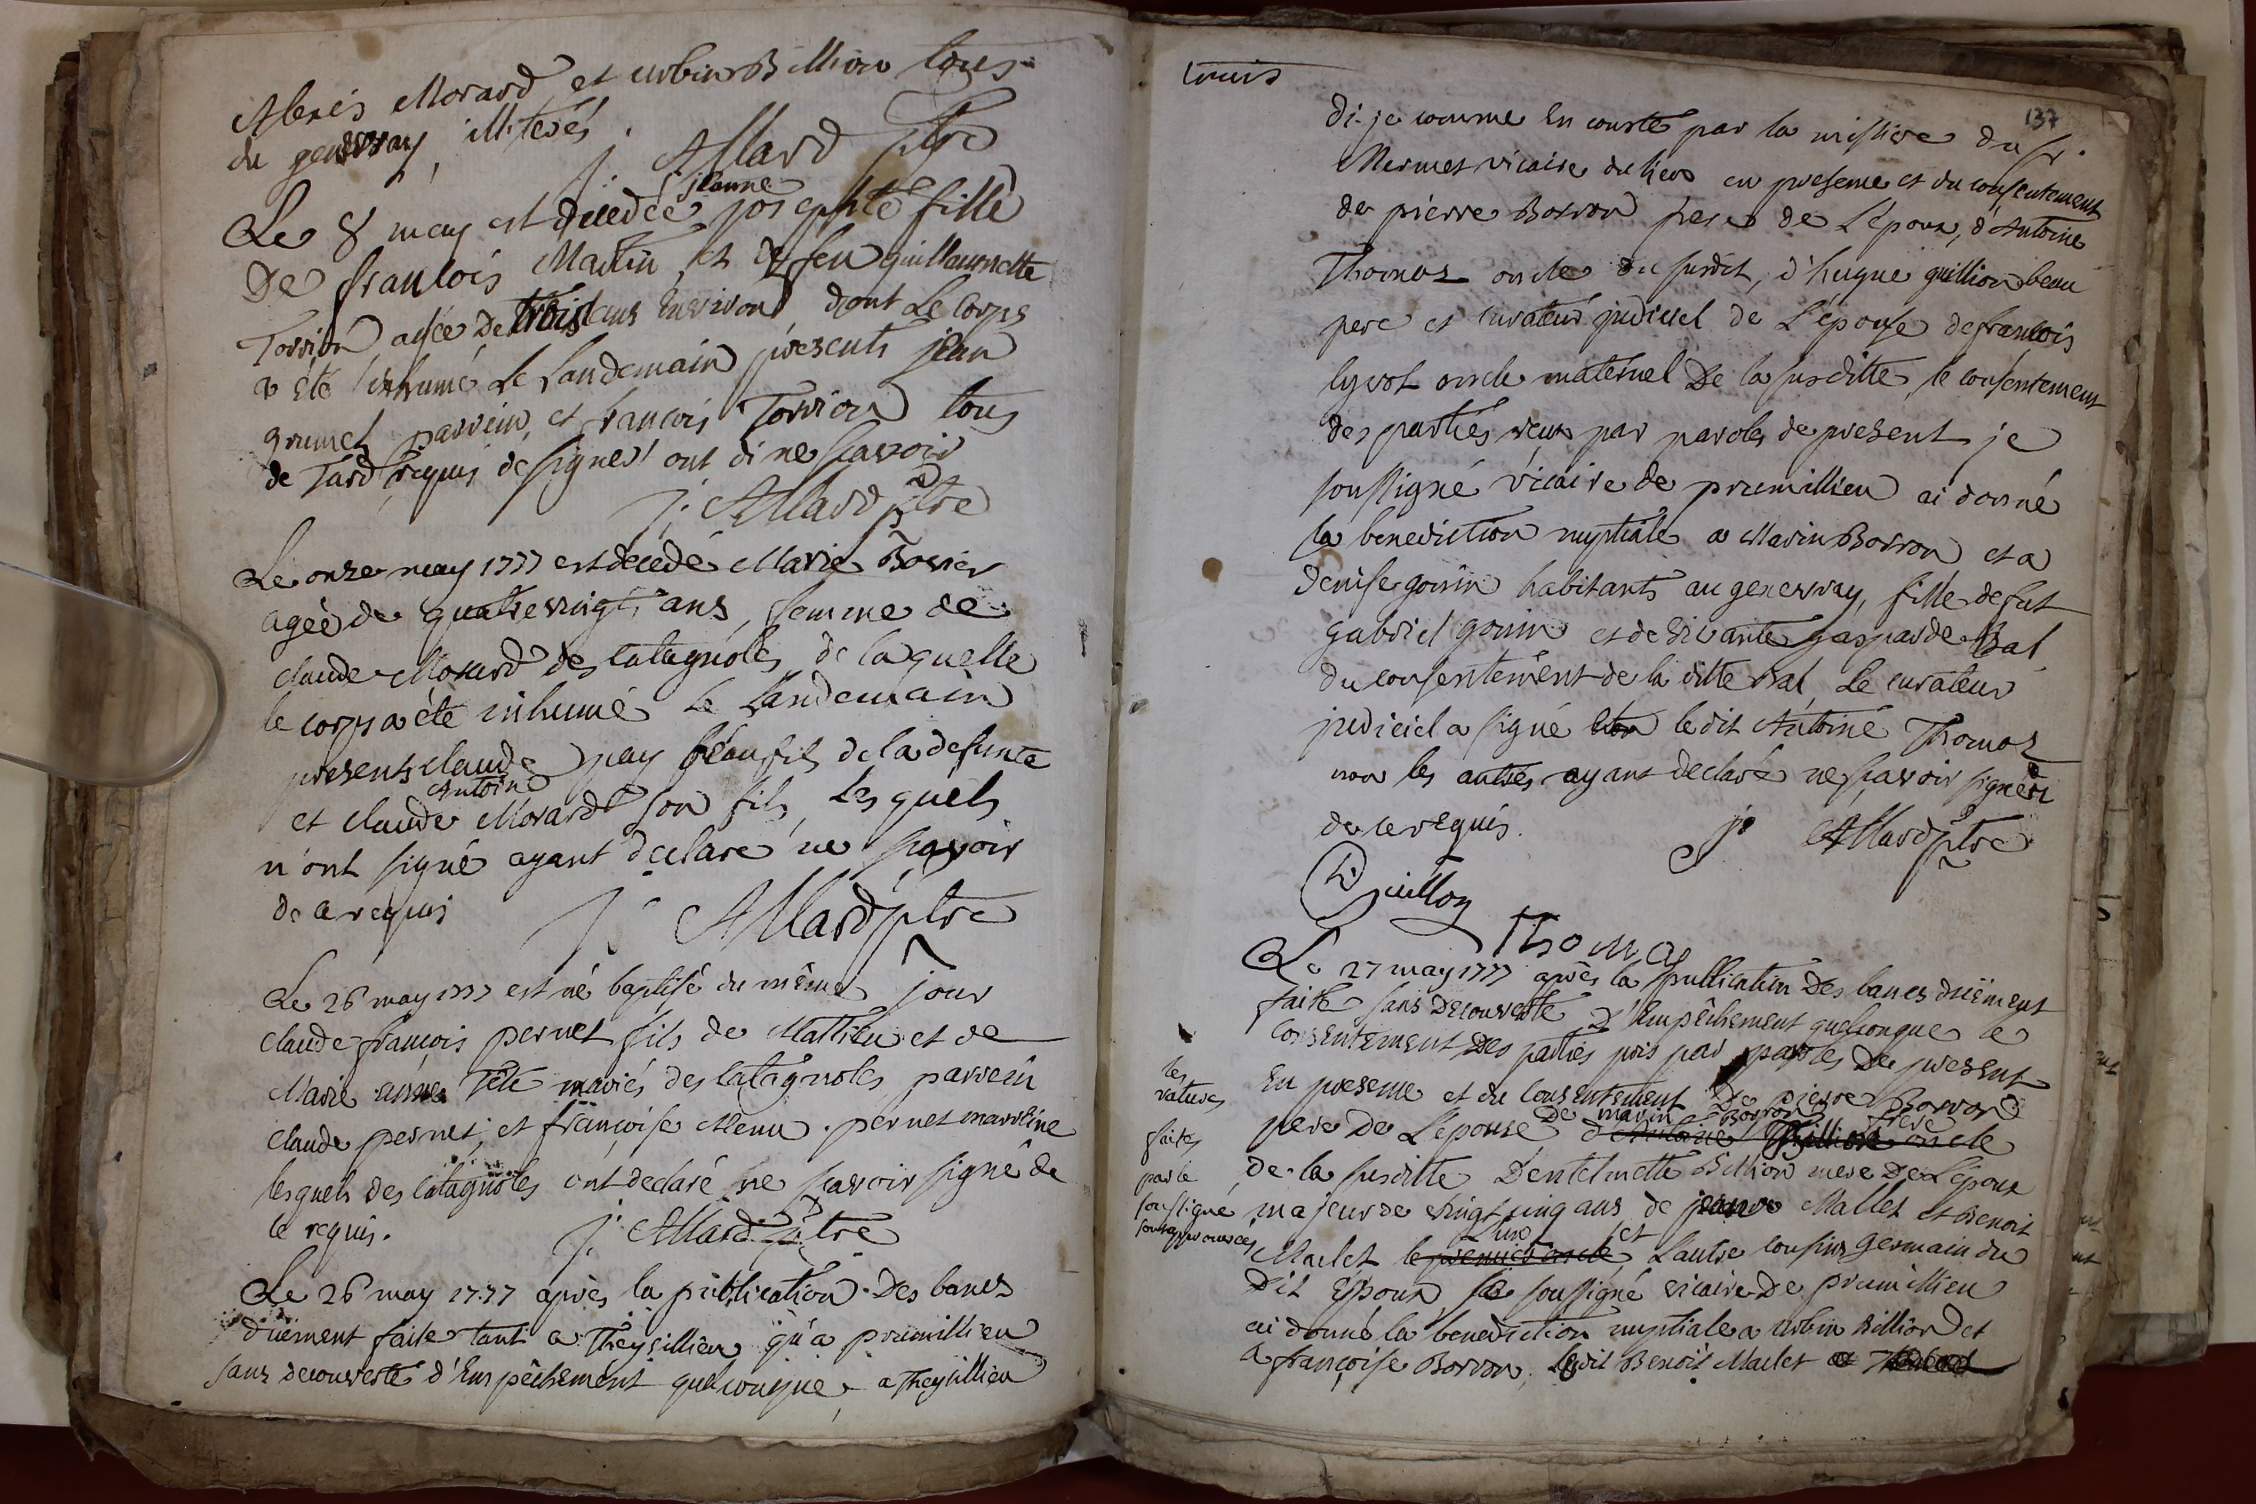 Alexis Morard et urbin Billion tous
du genevray illiterés.
j. Allard ptre
jeanne
Le 8 may est decedée josephte fille
De francois Martin et de feu guillaumette
Torrion agée de trois ans Environ dont Le Corps
a été inhumé Le Landemain présents jean
grumel parrein, et francois Torrion tous
de Tard requis de signer ont di ne scavoir
j. Allard ptre
Le onze may 1777 est decedé Marie Borrier
agée de quatrevingts ans, femme de
claude Morard des Catagnoles de laquelle
le corps a été inhumé Le Landemain
presents claude pay beaufils de la defunte
Antoine
et claude Morard son fils, Lesquels
n'ont signé ayant declaré ne scavoir
de ce requis
j. Allard ptre
Le 26 may 1777 est né baptisé du même jour
claude françois pernet fils de Mathieu et de
Marie Tété mariés des Catagnoles parrein
claude pernet, et françoise Menu. pernet marreine
lesquels des Catagnoles ont declaré ne scavoir signé de
ce requis.
j. Allard ptre
Le 26 may 1777 après la publication des bancs
duement faite tant a Theysillieu qu'a prumillieu
sans decouverte d'Empêchement quelconque, a Theysillieu
137
di-je comme En conste par la missive du sr.
Mermet vicaire du lieu en presence et du consentement
de pierre Borron pere de L'époux, d'Antoine
Thomaz oncle du susdit, d'hugue guillion beau
pere et curateur judiciel de L'épouse de francois
lyvot oncle maternel De la susditte, le consentement
des parties reçus par paroles de present je
soussigné vicaire de prumillieu ai donné
la benediction nuptiale a Marin Borron et a
denise gonin habitants au genevray, fille de fut
gabriel gonin et de vivante gasparde Bal
du consentement de la ditte Bal Le curateur
judiciel a signé ledit Antoine Thomaz
non les autres ayant declaré ne scavoir signér
de ce requis.
j. Allard ptre
h guillon
Thoma
Le 27 may 1777 après la publication Des bancs duëment
faite sans Decouverte d'Empêchement quelconque le
Consentement Des parties pris par paroles De present
En presence et du consentement De pierre Borron
De marin Borron frere
pere De L'epouse d'Antoine Billion oncle
De la susditte D'entelmette Billion mere De L'époux
majeur de vingt cinq ans de Mallet et Benoit
L'un et
Maclet le premier oncle L'autre cousins germain du
Dit Époux soussigné vicaire De prumillieu
ai donné la benediction nuptiale a urbin Billion et
a françoise Borron, ledit Benoit Maclet
les
ratures
faites
par le
soussigné
sont approuvées